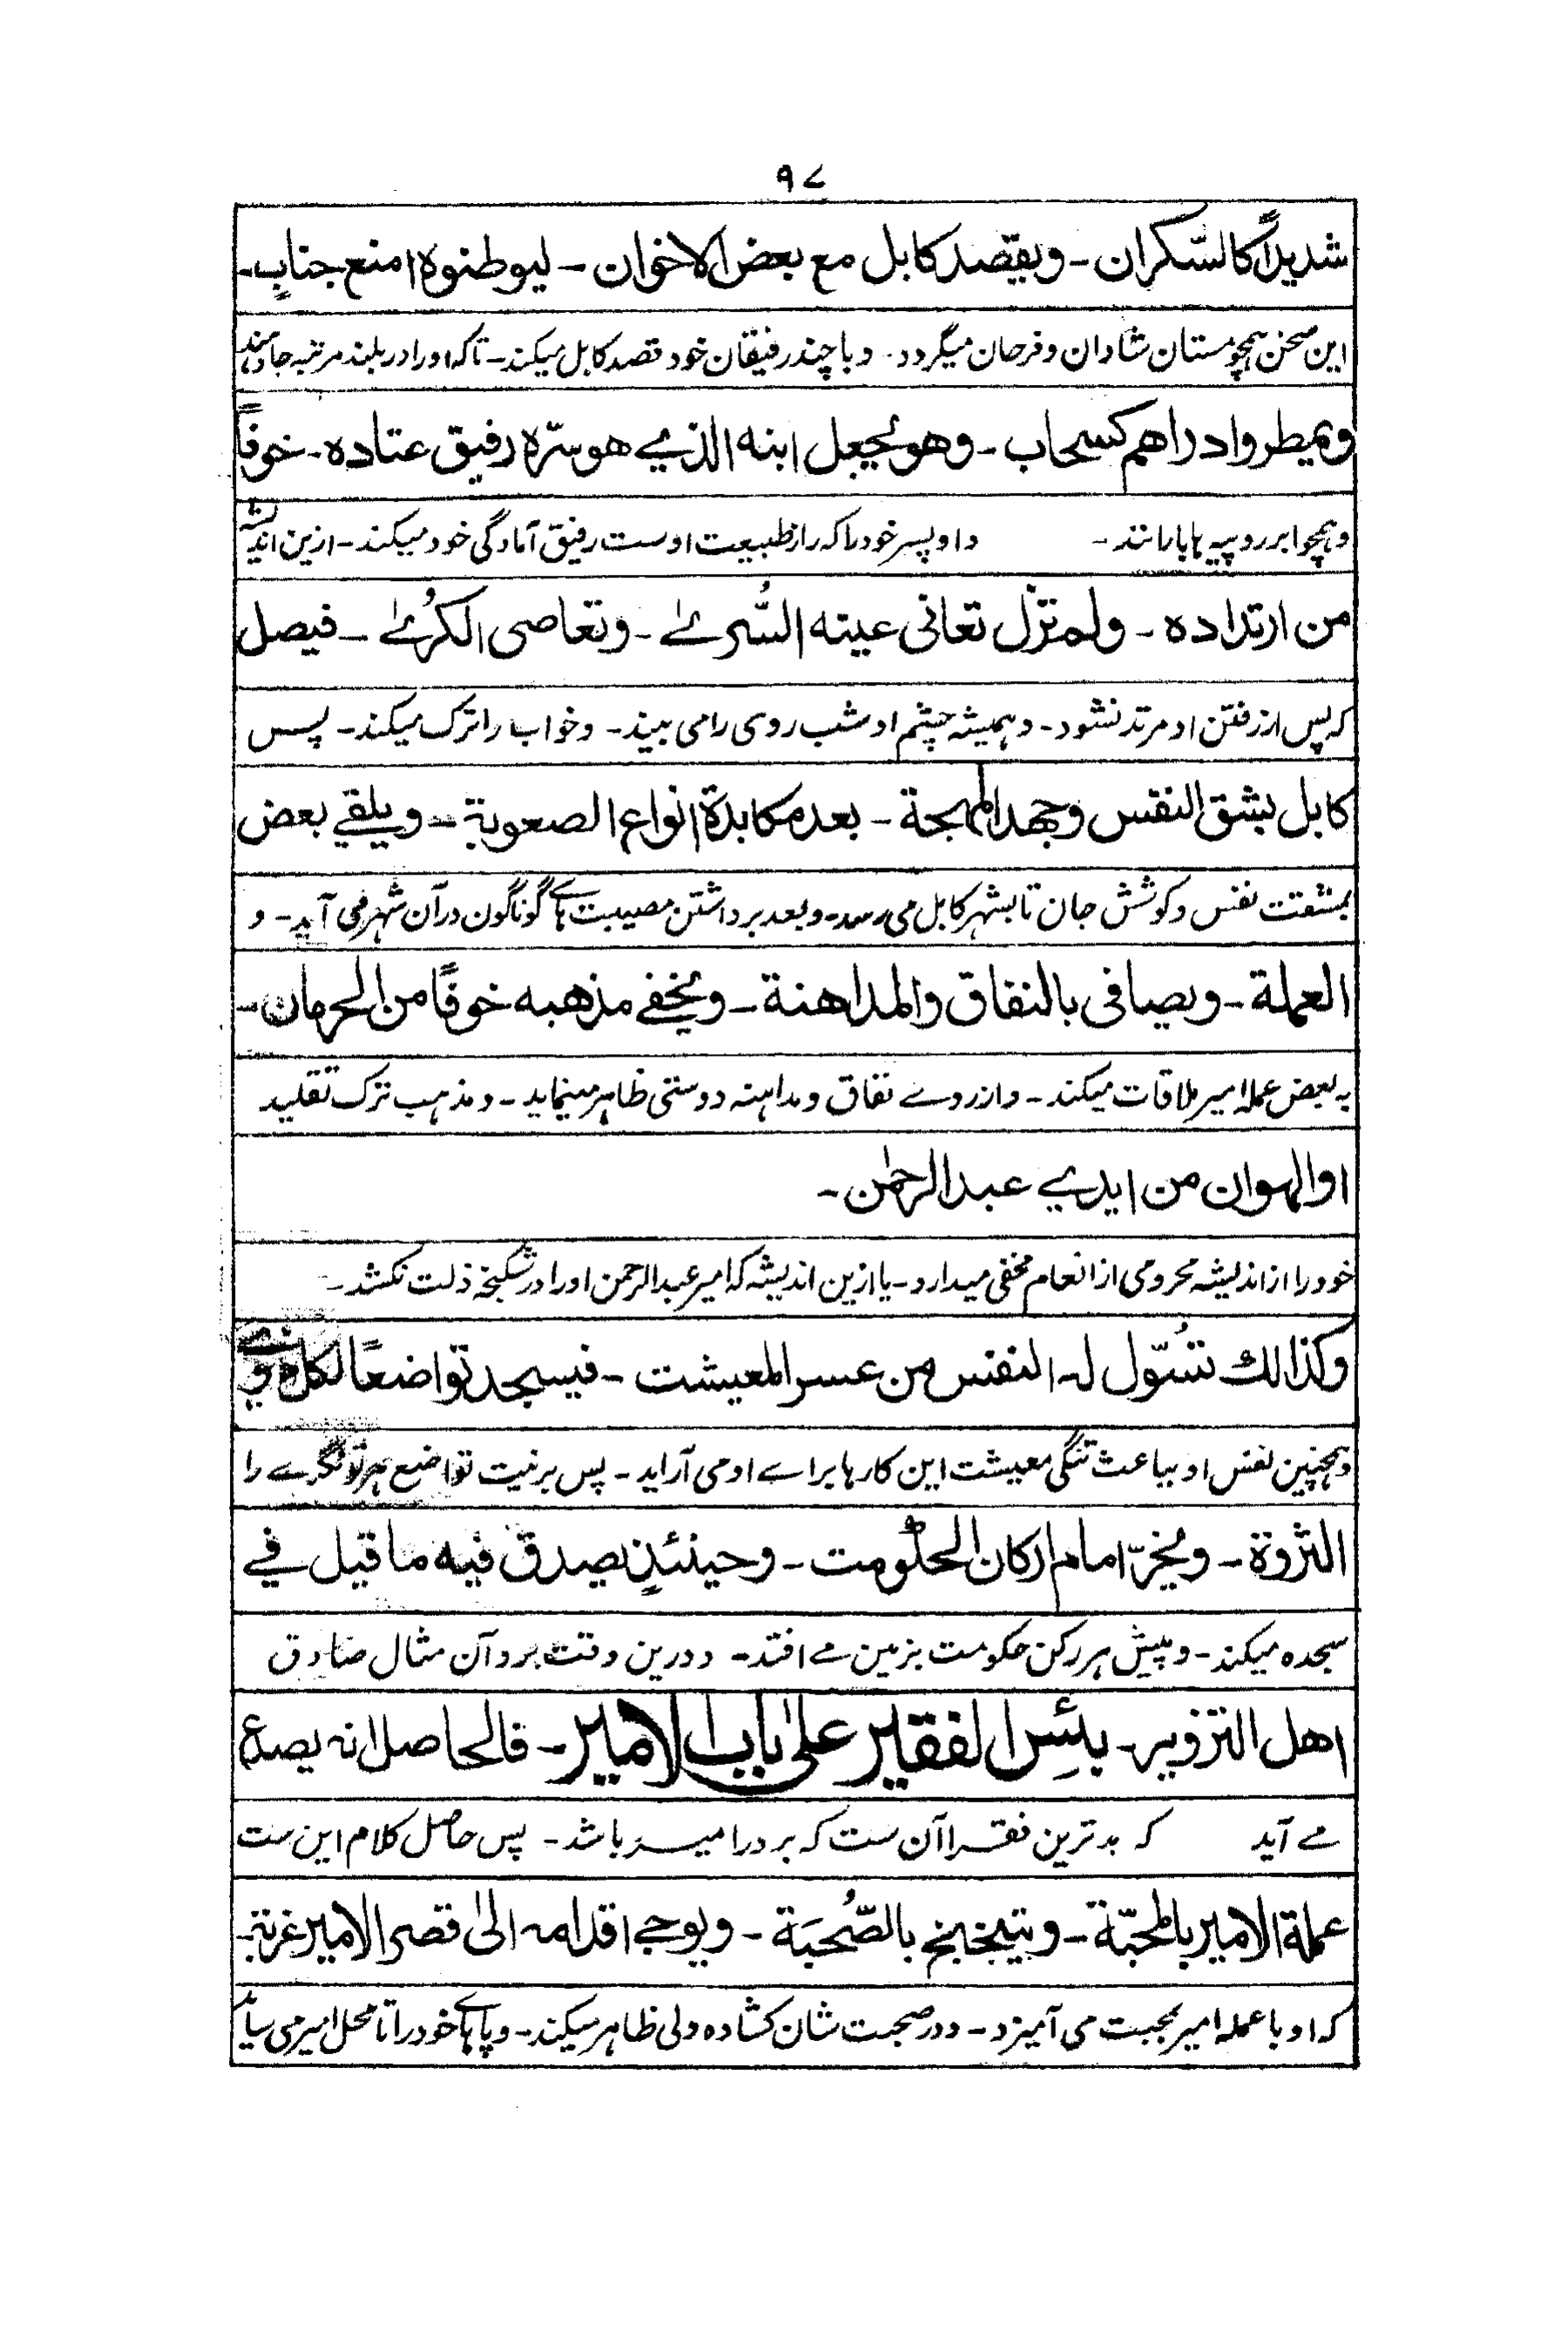 ۹۷
شديدًا كالسّكران ـ ويقصد كابل مع بعض الاخوان ـ ليوطنوه امنع جنابٍ ـ
این سخن ہمچو مستان شادان و فرحان میگردد ـ و با چند رفیقان خود قصد کابل میکند ـ تاکہ او را در بلند مرتبہ جا دہند
ويمطروا دراهم كسحاب ـ وهو يجعل ابنه الذي هو سرّه رفيق عتاده ـ خوفًا
و ہمچو ابر روپیہ ہا بارانند ـ و او پسر خود را کہ راز طبیعت اوست رفیق آمادگی خود میکند ـ ازین اندیشہ
من ارتداده ـ ولم تزل تعانى عينه السُّرىٰ ـ وتعاصى الكرىٰ ـ فيصل
کہ پس از رفتن او مرتد نشود ـ و ہمیشہ چشم او شب روی را می بیند ـ و خواب را ترک میکند ـ پس
كابل بشق النفس وجهد المهجة ـ بعد مكابدة انواع الصعوبة ـ ويلقي بعض
بمشقت نفس و کوشش جان تا بشہر کابل می رسد ـ و بعد برداشتن مصیبت ہائے گوناگون در آن شہر می آید ـ و
العملة ـ ويصافى بالنفاق والمداهنة ـ ويخفي مذهبه خوفًا من الحرمان ـ
بہ بعض عملہ امیر ملاقات میکند ـ و از روے نفاق و مداہنہ دوستی ظاہر مینماید ـ و مذہب ترک تقلید
او الهوان من ايدي عبد الرحمٰن ـ
خود را از اندیشہ محرومی از انعام مخفی میدارد ـ یا ازین اندیشہ کہ امیر عبد الرحمن او را در شکنجہ ذلت نکشد ـ
وكذالك تسُوّل له النفس من عسر المعيشت ـ فيسجد تواضعًا لكل ذوي
و ہمچنین نفس او بباعث تنگی معیشت این کارہا برائے او می آراید ـ پس بر نیت تواضع ہر تونگرے را
الثروة ـ ويخرّ امام اركان الحكومت ـ وحينئذٍ يصدق فيه ما قيل في
سجدہ میکند ـ و پیش ہر رکن حکومت بزمین مے افتد ـ و درین وقت برو آن مثال صادق
اهل التزوير ـ بئس الفقير علىٰ باب الامير ـ فالحاصل انه يصدع
مے آید کہ بدترین فقرا آن ست کہ بر در امیر باشد ـ پس حاصل کلام این ست
عملة الامير بالمحبّة ـ ويتبخبخ بالصُّحبَة ـ ويوجي اقدامه الىٰ قصر الامير غربة ـ
کہ او با عملہ امیر بمحبت می آمیزد ـ و در صحبت شان کشادہ دلی ظاہر میکند ـ و پاہائے خود را تا محل امیر می